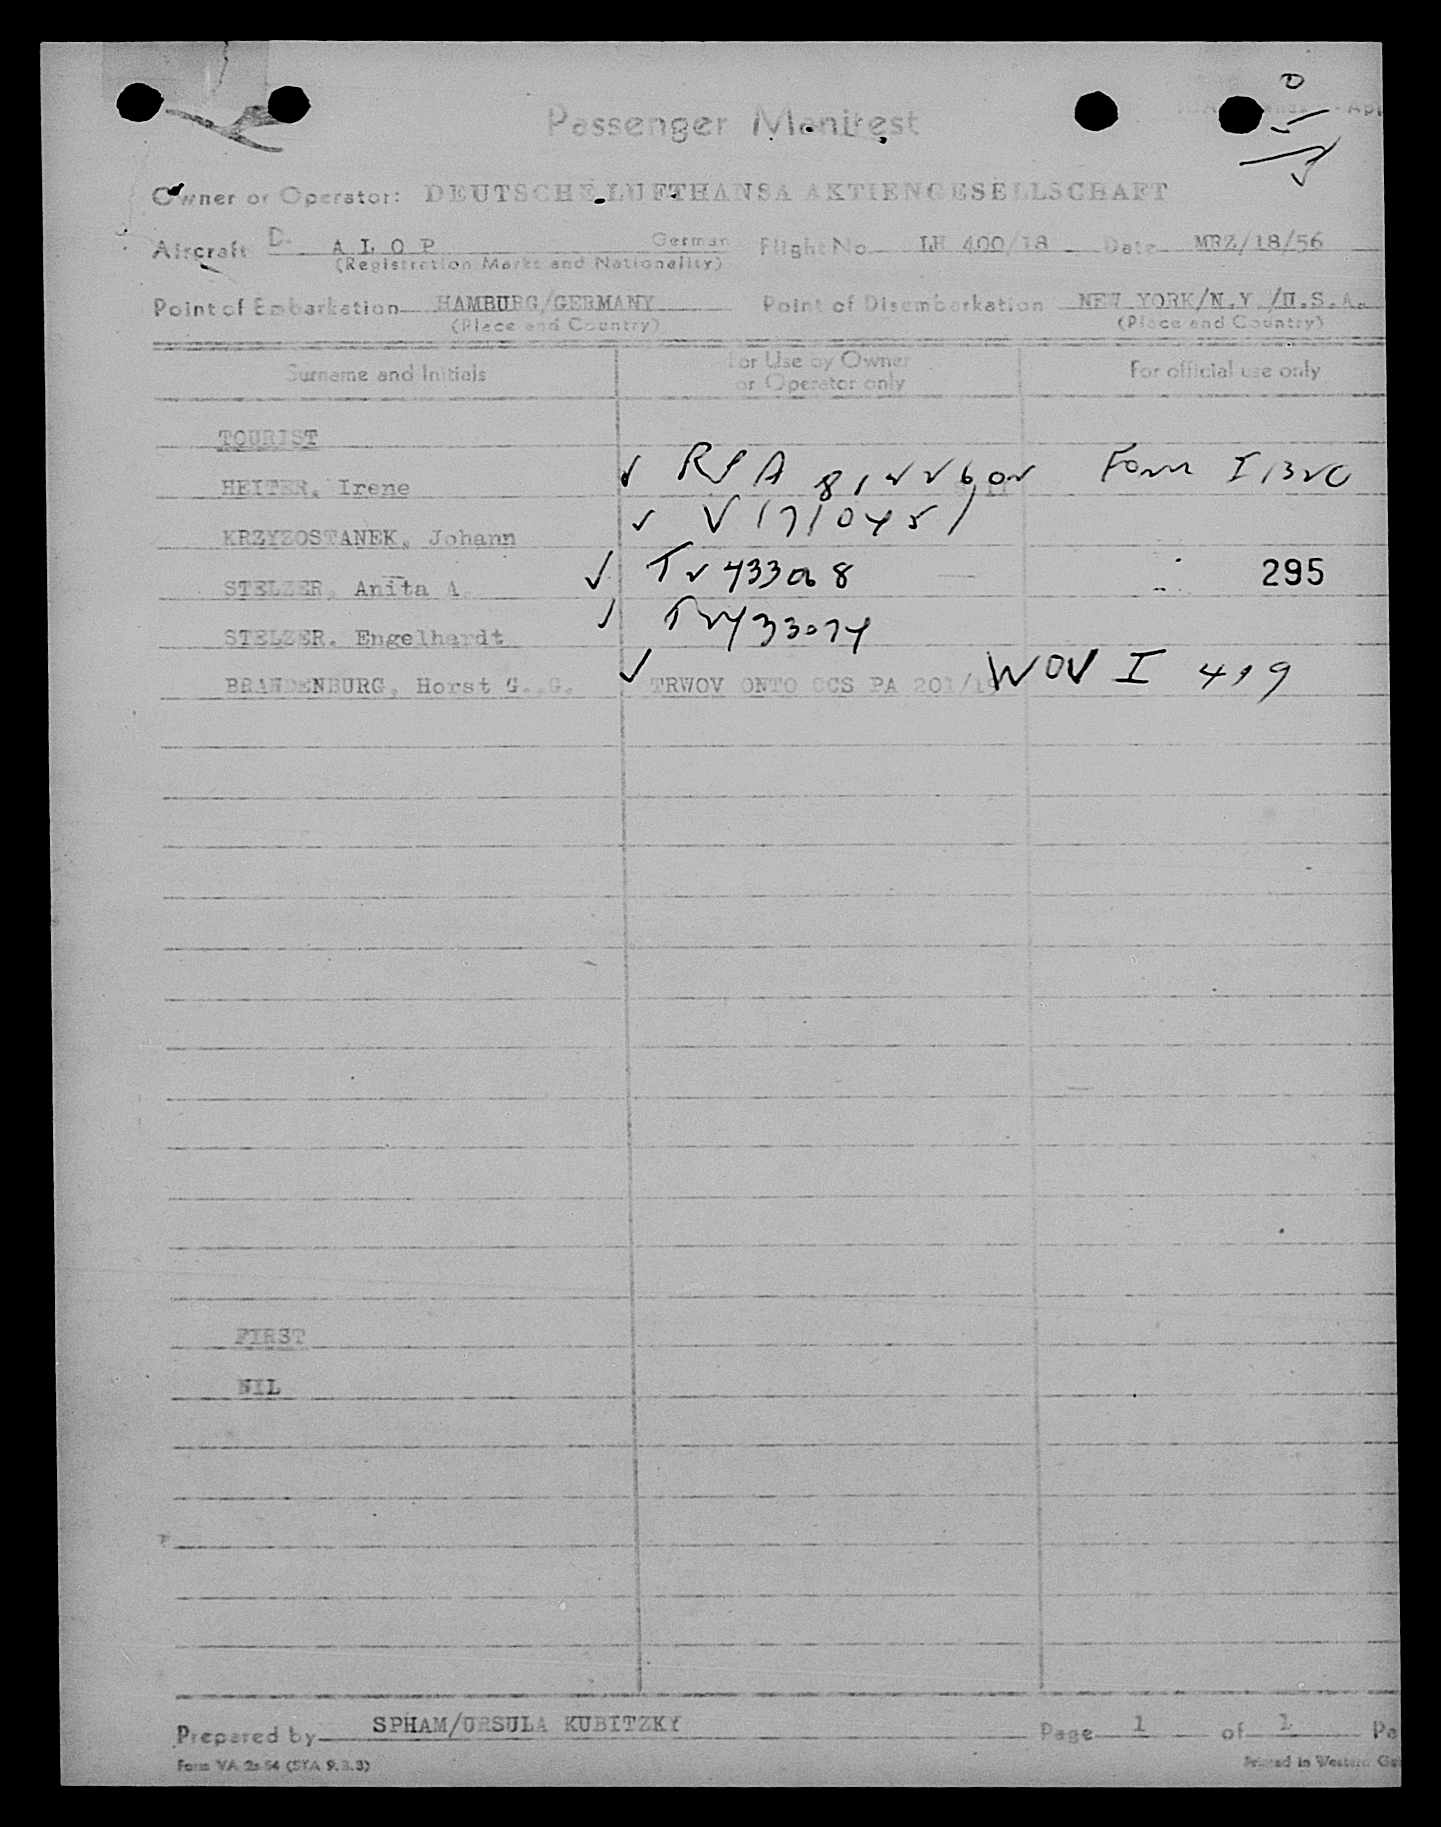 Passenger Manifest
Owner or Operator: DEUTSCHE LUFTHANSA AKTIENGESELLSCHAFT
Aircraft D- A L O P German Flight No. LH 400/18 Date MRZ/18/56
(Registration Marks and Nationality)
Point of Embarkation HAMBURG/GERMANY Point of Disembarkation NEW YORK/N.Y./U.S.A.
(Place and Country) (Place and Country)
Surname and Initials For Use by Owner or Operator only For official use only
TOURIST
HEITER, Irene ✓ Form I
KRZYZOSTANEK, Johann ✓ V
STELZER, Anita A. ✓ 295
STELZER, Engelhardt ✓
BRANDENBURG, Horst G. G. ✓ TRWOV ONTO CCS PA 201/19 WOV I
FIRST
NIL
Prepared by SPHAM/URSULA KUBITZKY Page 1 of 1 Pa
Printed in Western Ge